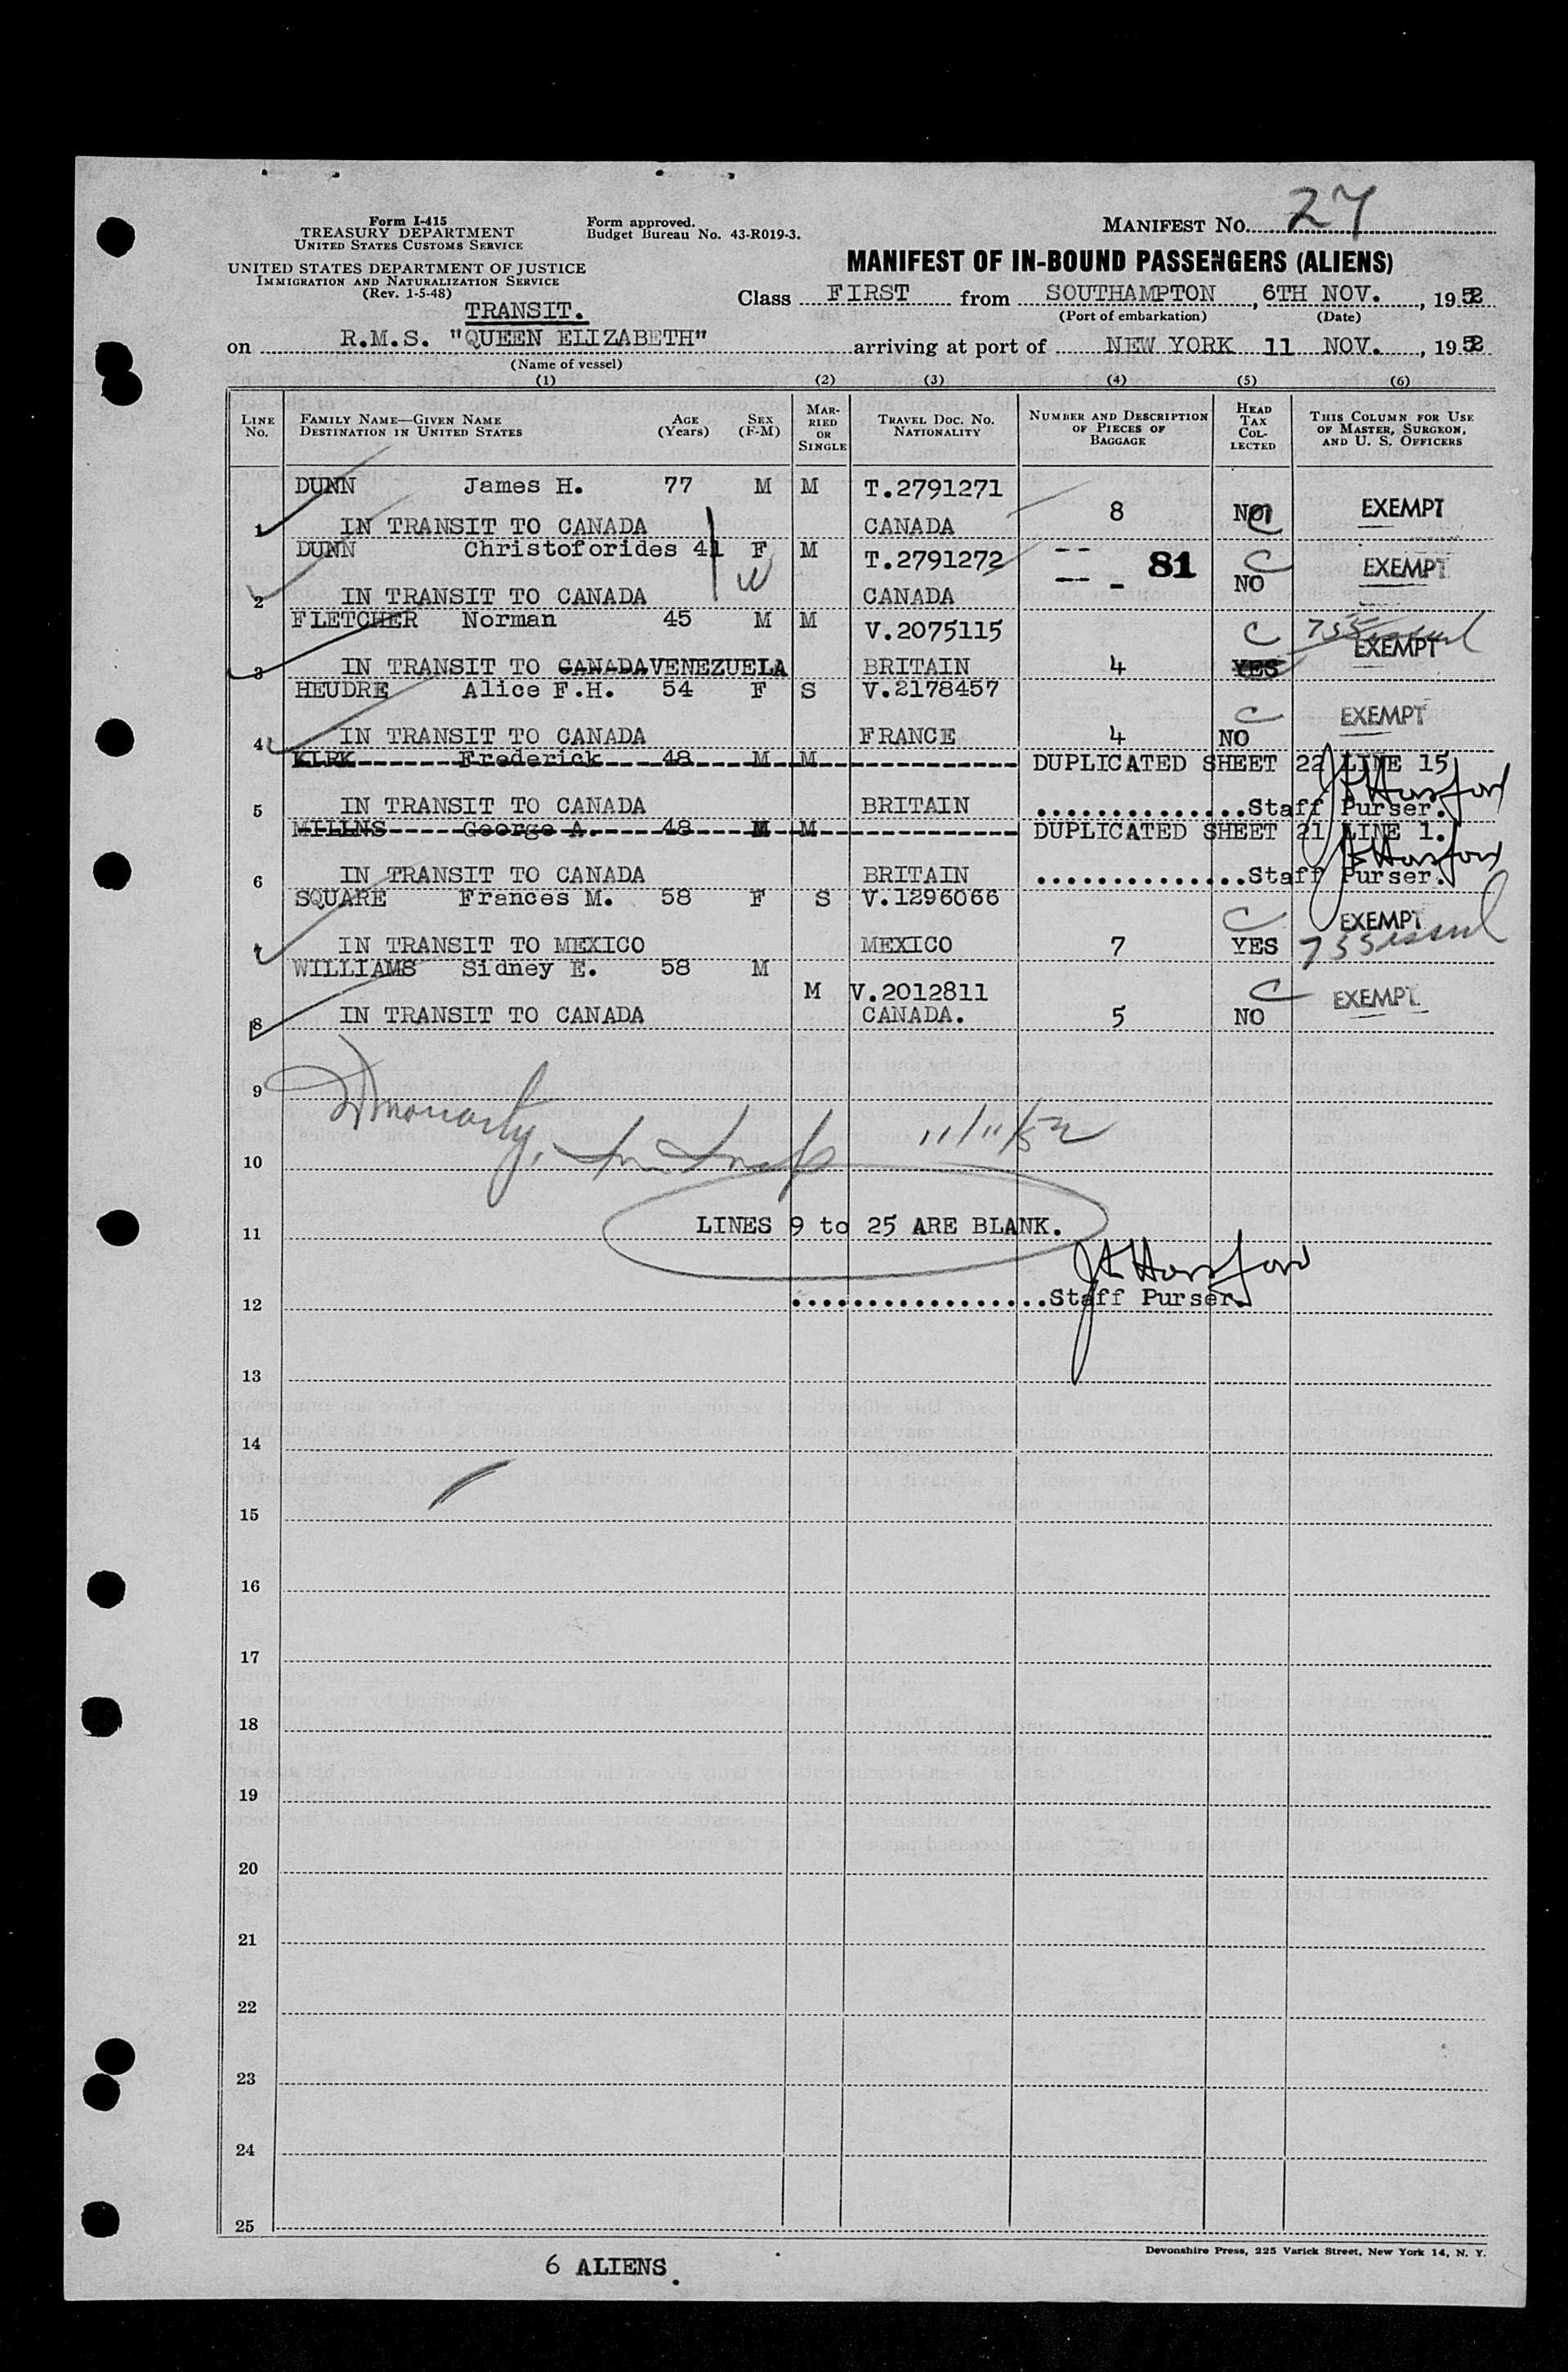 Form I-415
TREASURY DEPARTMENT
UNITED STATES CUSTOMS SERVICE
Form approved.
Budget Bureau No. 43-R019-3.
MANIFEST No. 27
UNITED STATES DEPARTMENT OF JUSTICE
IMMIGRATION AND NATURALIZATION SERVICE
(Rev. 1-5-48)
MANIFEST OF IN-BOUND PASSENGERS (ALIENS)
TRANSIT.
Class FIRST from SOUTHAMPTON, 6TH NOV., 1952
(Port of embarkation) (Date)
on R.M.S. "QUEEN ELIZABETH" arriving at port of NEW YORK 11 NOV., 1952
(Name of vessel)
(1) (2) (3) (4) (5) (6)
LINE No. FAMILY NAME—GIVEN NAME DESTINATION IN UNITED STATES AGE (Years) SEX (F-M) MARRIED OR SINGLE TRAVEL DOC. NO. NATIONALITY NUMBER AND DESCRIPTION OF PIECES OF BAGGAGE HEAD TAX COLLECTED THIS COLUMN FOR USE OF MASTER, SURGEON, AND U. S. OFFICERS
DUNN James H. 77 M M T.2791271
1 IN TRANSIT TO CANADA CANADA 8 NO C EXEMPT
DUNN Christoforides 41 F M T.2791272 -- 81 C EXEMPT
2 IN TRANSIT TO CANADA W CANADA -- - NO
FLETCHER Norman 45 M M V.2075115 C EXEMPT
3 IN TRANSIT TO CANADA VENEZUELA BRITAIN 4 YES
HEUDRE Alice F.H. 54 F S V.2178457 C EXEMPT
4 IN TRANSIT TO CANADA FRANCE 4 NO
KIRK Frederick 48 M M DUPLICATED SHEET 22 LINE 15
5 IN TRANSIT TO CANADA BRITAIN ...............Staff Purser.
MILLNS George A. 48 M M DUPLICATED SHEET 21 LINE 1.
6 IN TRANSIT TO CANADA BRITAIN ...............Staff Purser.
SQUARE Frances M. 58 F S V.1296066 C EXEMPT
7 IN TRANSIT TO MEXICO MEXICO 7 YES
WILLIAMS Sidney E. 58 M M V.2012811 C EXEMPT
8 IN TRANSIT TO CANADA CANADA. 5 NO
9
11/11/52
10
LINES 9 to 25 ARE BLANK.
11
12 ..................Staff Purser.
13
14
15
16
17
18
19
20
21
22
23
24
25
Devonshire Press, 225 Varick Street, New York 14, N. Y.
6 ALIENS.